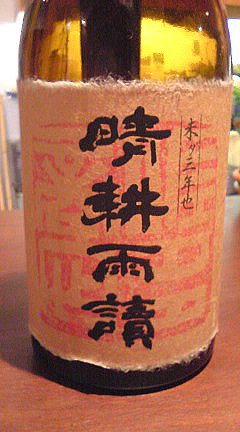 未タ三年也
晴耕雨讀